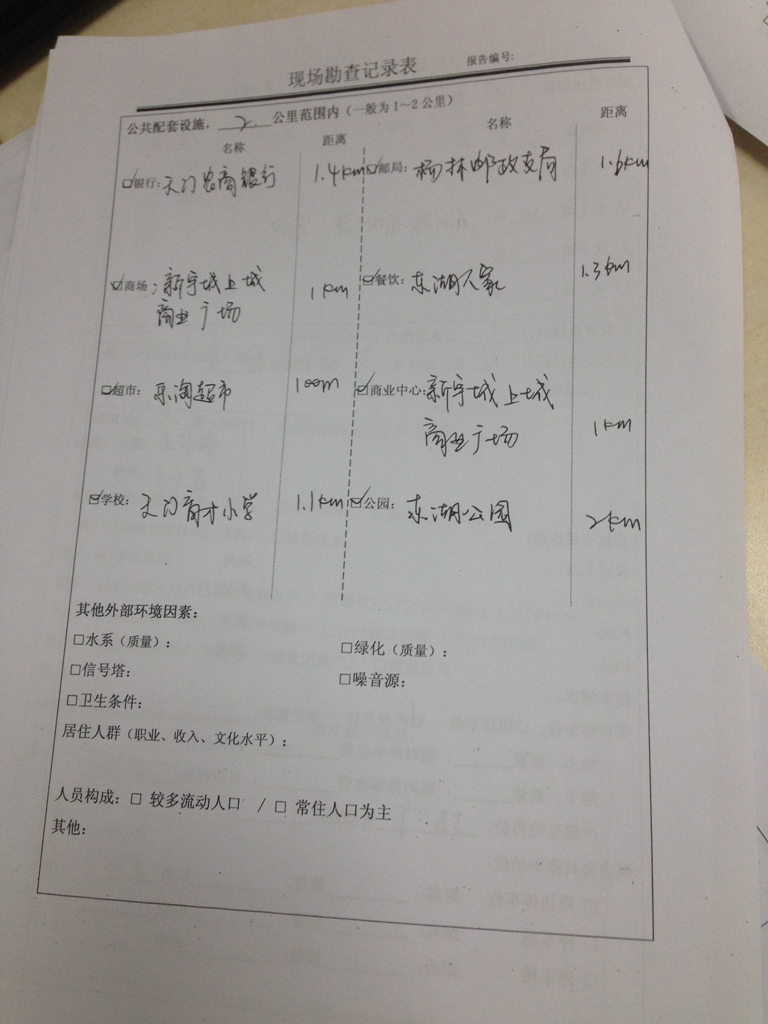 现场勘查记录表 报告编号:
公共配套设施, 2 公里范围内(一般为1~2公里)
名称 距离 名称 距离
☑银行: 天门农商银行 1.4km ☑邮局: 杨林邮政支局 1.6km
☑商场: 新宇城上城 1km ☑餐饮: 东湖人家 1.3km
商业广场
☑超市: 乐淘超市 100m ☑商业中心: 新宇城上城
商业广场 1km
☑学校: 天门育才小学 1.1km ☑公园: 东湖公园 2km
其他外部环境因素:
☐水系(质量): ☐绿化(质量):
☐信号塔: ☐噪音源:
☐卫生条件:
居住人群(职业、收入、文化水平):
人员构成: ☐ 较多流动人口 / ☐ 常住人口为主
其他: